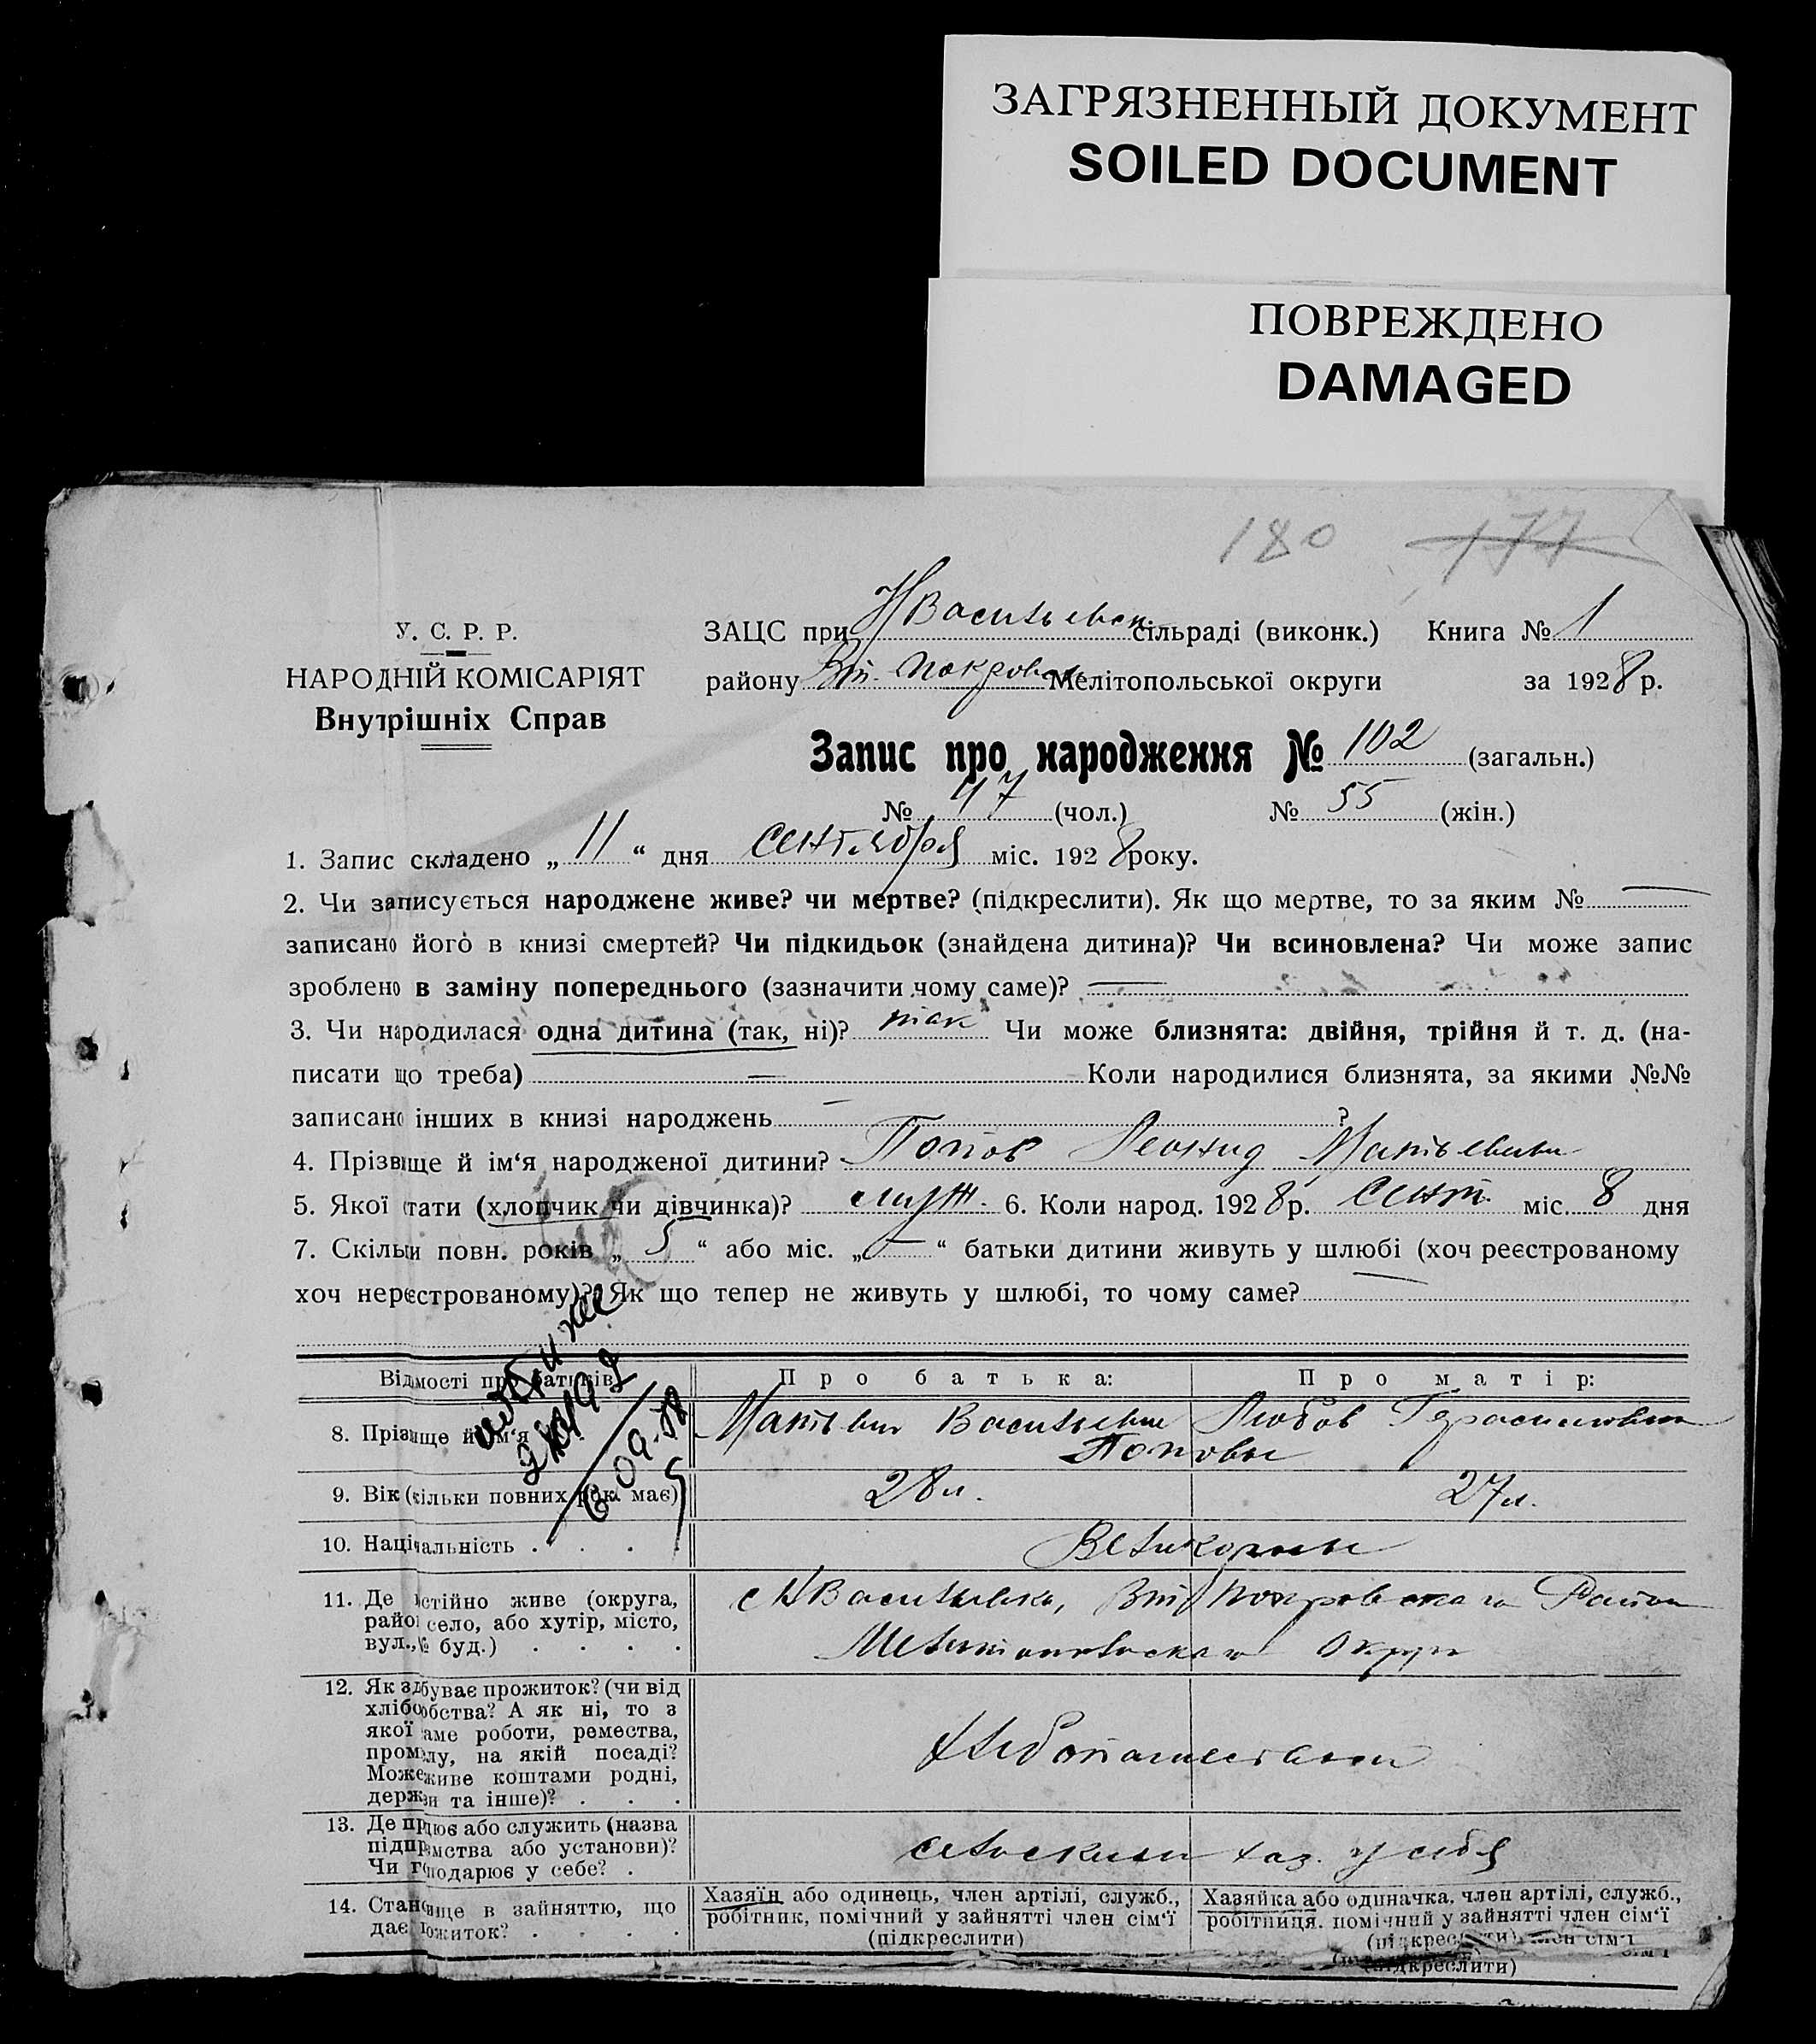 ЗАГРЯЗНЕННЫЙ ДОКУМЕНТ
SOILED DOCUMENT
ПОВРЕЖДЕНО
DAMAGED
180 177
У. С. Р. Р.
НАРОДНІЙ КОМІСАРІЯТ
Внутрішніх Справ
ЗАЦС при НВасильевск сільраді (виконк.) Книга № 1
району Вт. Покровск Мелітопольської округи за 1928 р.
Запис про народження № 102 (загальн.)
№ 47 (чол.) № 55 (жін.)
1. Запис складено „ 11 “ дня сентября міс. 1928 року.
2. Чи записується народжене живе? чи мертве? (підкреслити). Як що мертве, то за яким № —
записано його в книзі смертей? Чи підкидьок (знайдена дитина)? Чи всиновлена? Чи може запис
зроблено в заміну попереднього (зазначити чому саме)? —
3. Чи народилася одна дитина (так, ні)? так Чи може близнята: двійня, трійня й т. д. (на-
писати що треба) — Коли народилися близнята, за якими №№
записано інших в книзі народжень — ?
4. Прізвище й ім‘я народженої дитини? Попов Леонид Матвьевич
5. Якої стати (хлопчик чи дівчинка)? муж. 6. Коли народ. 1928 р. сент. міс. 8 дня
7. Скільки повн. років „ 5 “ або міс. „ — “ батьки дитини живуть у шлюбі (хоч реєстрованому
хоч нереєстрованому)? Як що тепер не живуть у шлюбі, то чому саме? —
Відомості про батьків Про батька: Про матір:
8. Прізвище й ім‘я Матвьей Васильевич Любов Герасимовна
Поповы
9. Вік (скільки повних рок. має) 28 л. 27 л.
10. Національність . . . . Великороссы
11. Де постійно живе (округа, с НВасильевка, Вт Покровскаго Района
район село, або хутір, місто,
вул., № буд.) . . . . Мелитопольскаго Округа
12. Як здобуває прожиток? (чи від
хліборобства? А як ні, то з
якої саме роботи, ремества,
промислу, на якій посаді?
Може живе коштами родні,
держави та інше)? . . . Хлебопашеством
13. Де працює або служить (назва
підприємства або установи)? сельским хаз. у себя
Чи господарює у себе? .
14. Становище в зайняттю, що
дає прожиток? . . . .
Хазяїн або одинець, член артілі, служб.,
робітник, помічний у зайнятті член сім‘ї
(підкреслити)
Хазяйка або одиначка, член артілі, служб.,
робітниця, помічний у зайнятті член сім‘ї
(підкреслити)